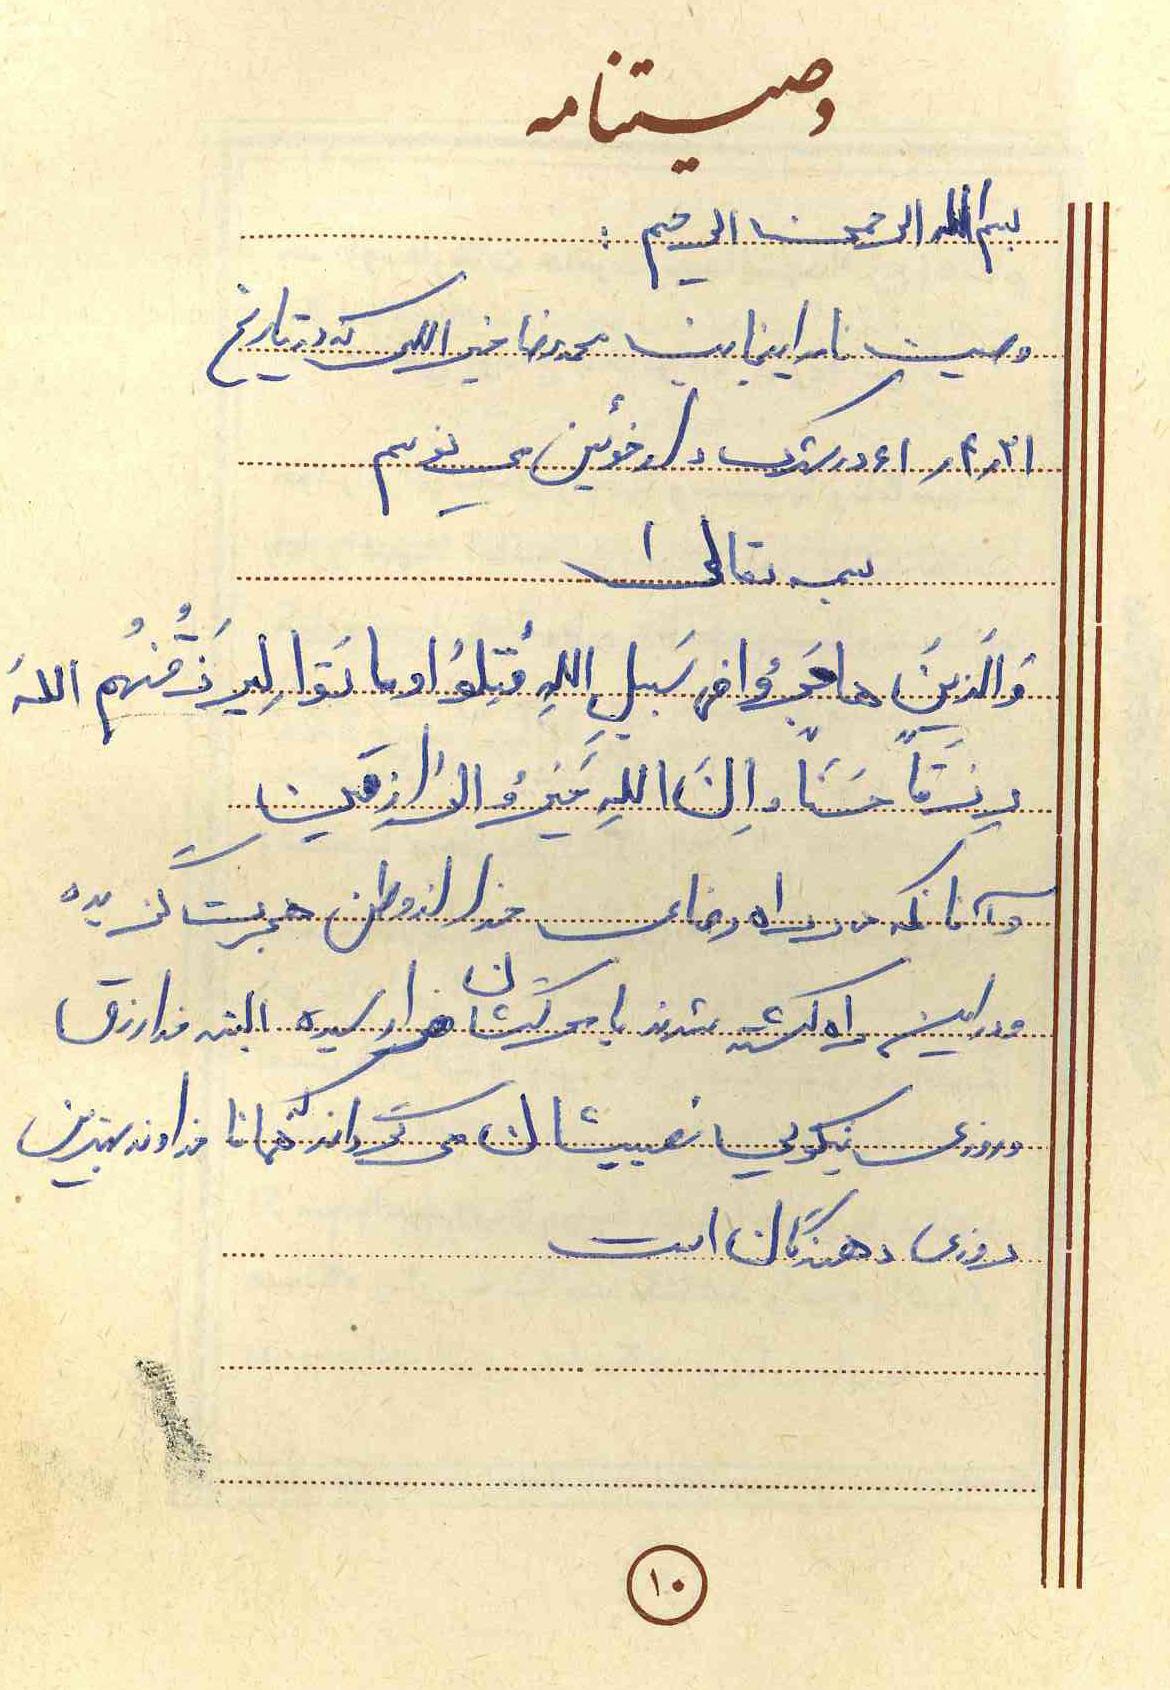 وصیتنامه
بسم الله الرحمن الرحیم :
وصیت نامه اینجانب محمدرضا خیراللهی که در تاریخ
۶۱٫۴٫۳۱ در شهرک دارخوئین می نویسم
بسمه تعالی
وَالَّذینَ هاجَروُا فی سَبیلِ اللهِ قُتِلوُا اوماتَوا لِیَرزُقَنهُم اللهَ
رِزقَاً حَسَنَاً وَاِنَ اللهِ خَیرُ الرازِقین
و آنانکه در راه رضای خدا از وطن هجرت گزیده
ودر این راه کشته شدند یا مرگشان فرا رسیده البته خدا رزق
وروزی نیکویی نصیبشان می گرداند که همانا خداوند بهترین
روزی دهندگان است
۱۰